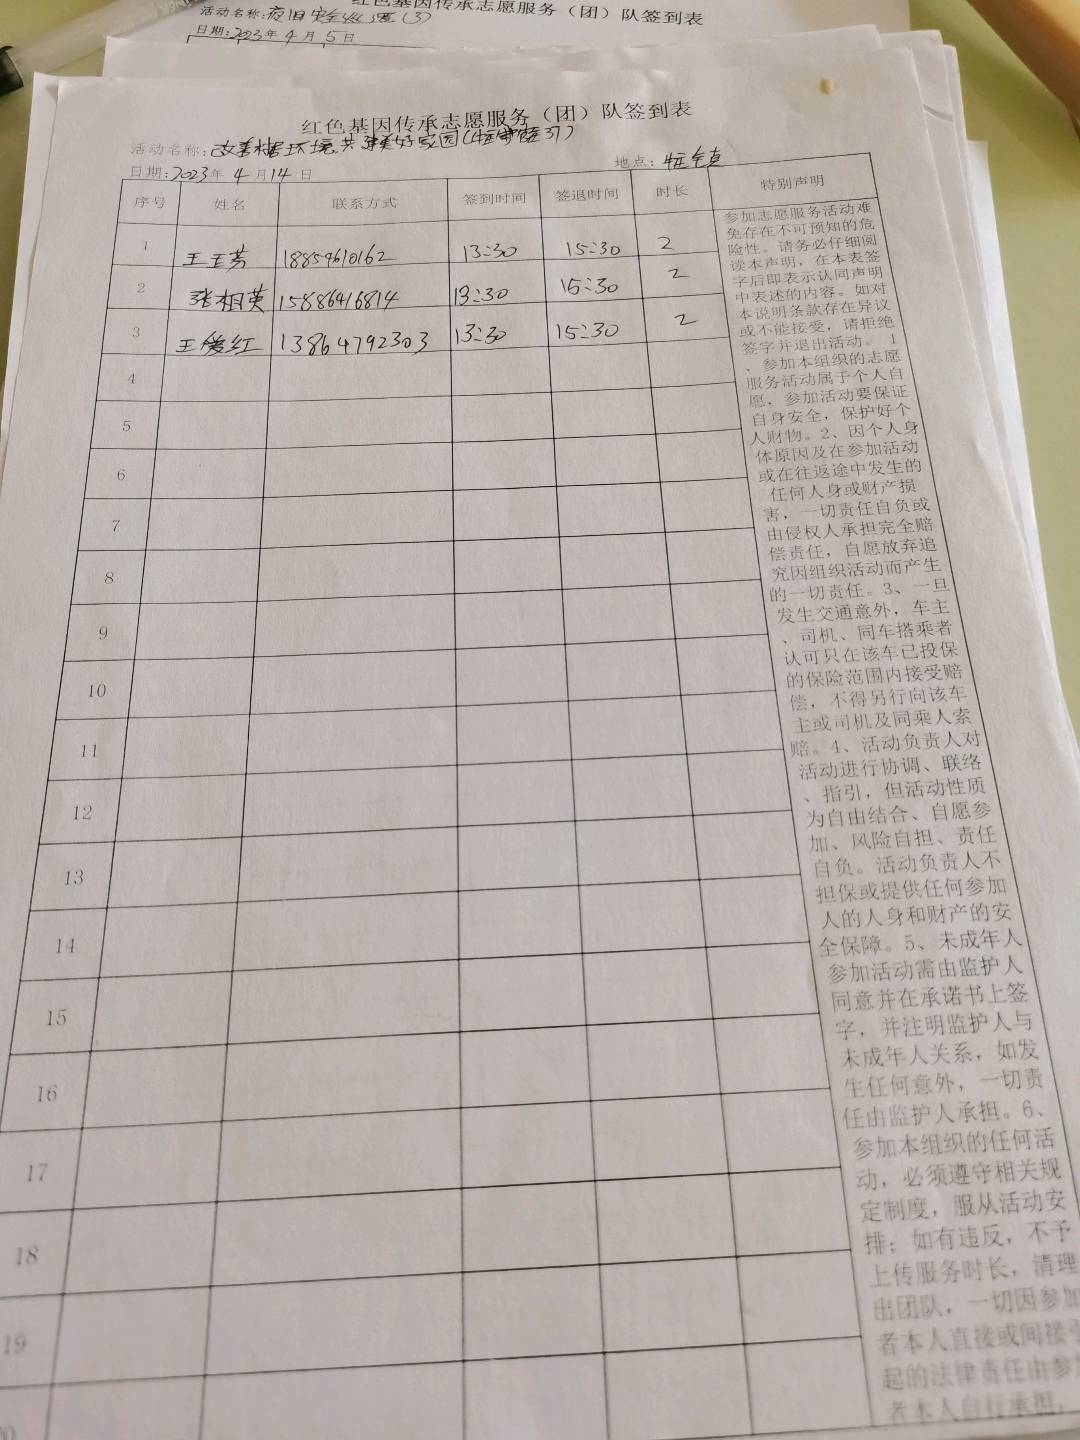 红色基因传承志愿服务（团）队签到表
活动名称:
日期:2023年4月5日
红色基因传承志愿服务（团）队签到表
活动名称:改善人居环境共建美好家园
日期:2023年4月14日 地点:
序号 姓名 联系方式 签到时间 签退时间 时长 特别声明
1 王玉芳 18859610162 13:30 15:30 2
2 张相英 15886416814 13:30 15:30 2
3 王爱红 13864792303 13:30 15:30 2
4
5
6
7
8
9
10
11
12
13
14
15
16
17
18
19
参加志愿服务活动难
免存在不可预知的危
险性。请务必仔细阅
读本声明，在本表签
字后即表示认同声明
中表述的内容。如对
本说明条款存在异议
或不能接受，请拒绝
签字并退出活动。1
、参加本组织的志愿
服务活动属于个人自
愿，参加活动要保证
自身安全，保护好个
人财物。2、因个人身
体原因及在参加活动
或在往返途中发生的
任何人身或财产损
害，一切责任自负或
由侵权人承担完全赔
偿责任，自愿放弃追
究因组织活动而产生
的一切责任。3、一旦
发生交通意外，车主
、司机、同车搭乘者
认可只在该车已投保
的保险范围内接受赔
偿，不得另行向该车
主或司机及同乘人索
赔。4、活动负责人对
活动进行协调、联络
、指引，但活动性质
为自由结合、自愿参
加、风险自担、责任
自负。活动负责人不
担保或提供任何参加
人的人身和财产的安
全保障。5、未成年人
参加活动需由监护人
同意并在承诺书上签
字，并注明监护人与
未成年人关系，如发
生任何意外，一切责
任由监护人承担。6、
参加本组织的任何活
动，必须遵守相关规
定制度，服从活动安
排；如有违反，不予
上传服务时长，清理
出团队，一切因参加
者本人直接或间接引
起的法律责任由参加
者本人自行承担。